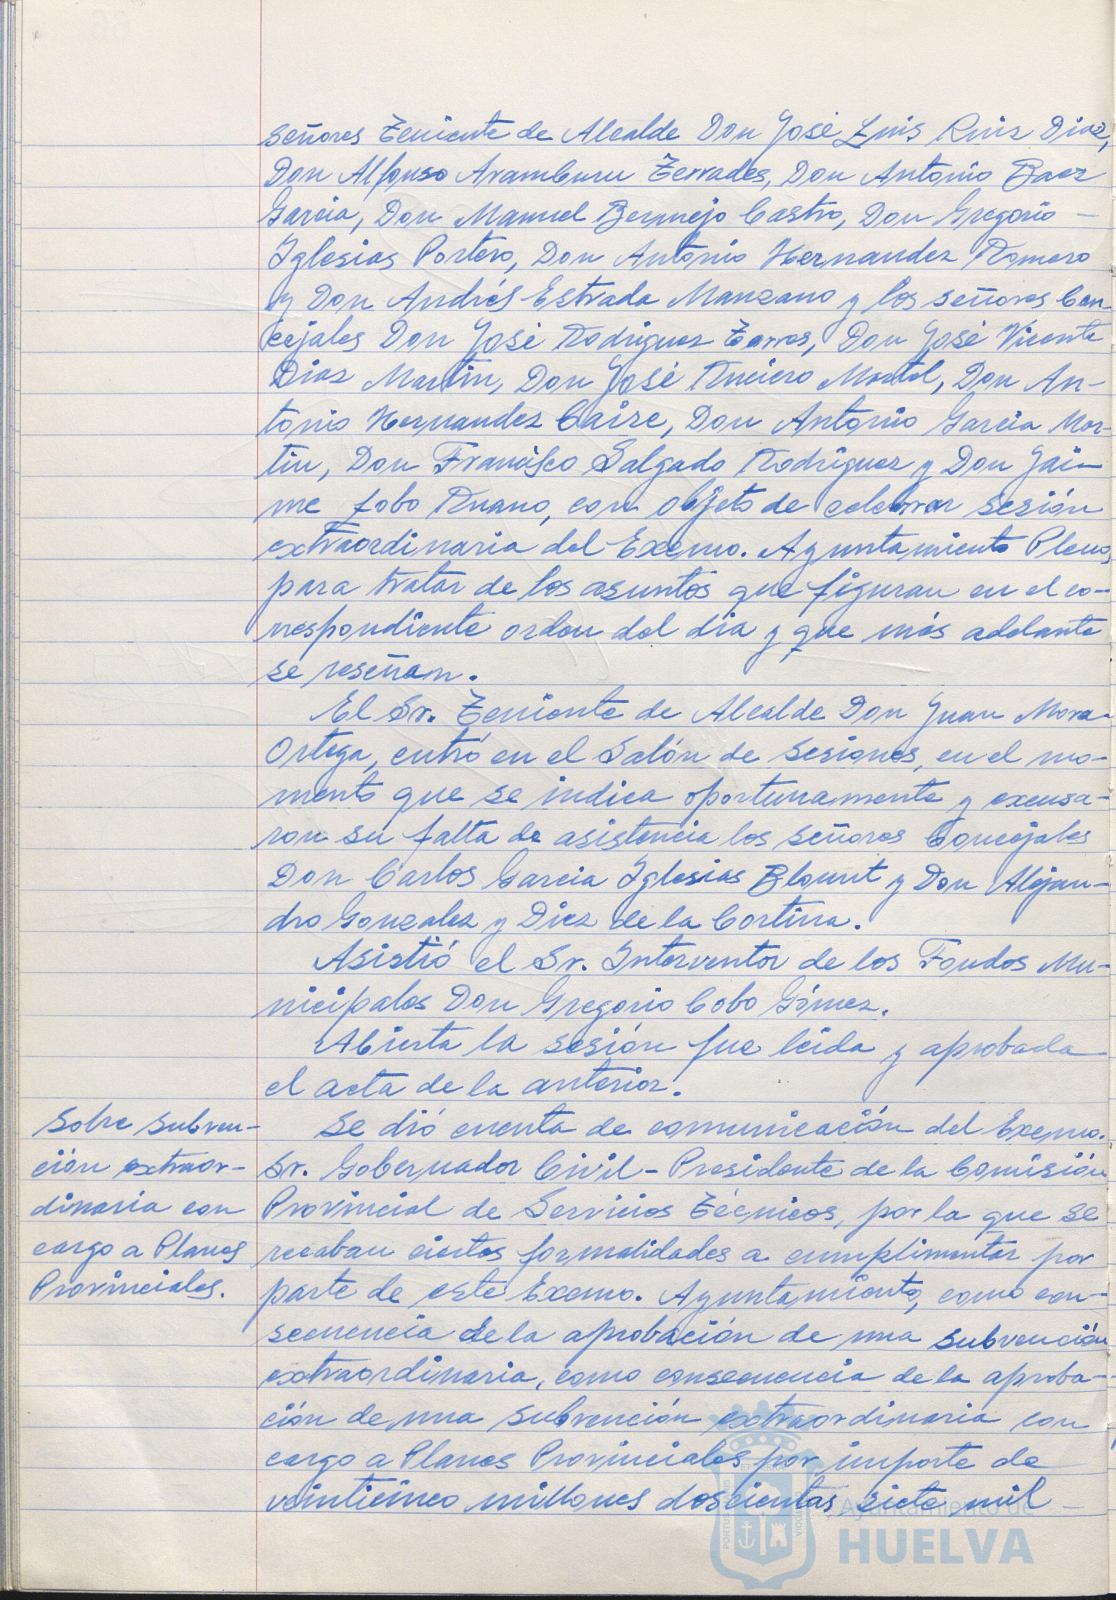 señores Teniente de Alcalde Don José Luis Ruiz Diaz,
Don Alfonso Aramburu Terrades, Don Antonio Baez
Garcia, Don Manuel Bermejo Castro, Don Gregorio –
Iglesias Portero, Don Antonio Hernandez Romero
y Don Andrés Estrada Manzano y los señores Con
cejales Don José Rodriguez Torres, Don José Vicente
Diaz Martin, Don José Ruciero Don An-
tonio Hernandez Caire, Don Antonio Garcia Mar-
tin, Don Francisco Salgado Rodriguez y Don Jai-
me Lobo Ruano, con objeto de celebrar sesión
extraordinaria del Excmo. Ayuntamiento Pleno,
para tratar de los asuntos que figuran en el co-
rrespondiente orden del dia y que más adelante
se reseñan.
El Sr. Teniente de Alcalde Don Juan Mora
Ortega, entró en el Salón de sesiones, en el mo-
mento que se indica oportunamente y excusa-
ron su falta de asistencia los señores Concejales
Don Carlos Garcia Iglesias Blount y Don Alejan-
dro Gonzalez y Diez de la Cortina.
Asistió el Sr. Interventor de los Fondos Mu-
nicipales Don Gregorio Cobo Gómez.
Abierta la sesión fue leida y aprobada
el acta de la anterior.
Sobre subven-
ción extraor-
dinaria con
cargo a Planes
Provinciales.
Se dió cuenta de comunicación del Excmo.
Sr. Gobernador Civil - Presidente de la Comisión
Provincial de Servicios Técnicos, por la que se
recaban ciertas formalidades a cumplimentar por
parte de este Excmo. Ayuntamiento, como con-
secuencia de la aprobación de una subvención
extraordinaria, como consecuencia de la aproba-
ción de una subvención extraordinaria con
cargo a Planes Provinciales por importe de
veinticinco millones doscientas siete mil –
Ayuntamiento de
HUELVA